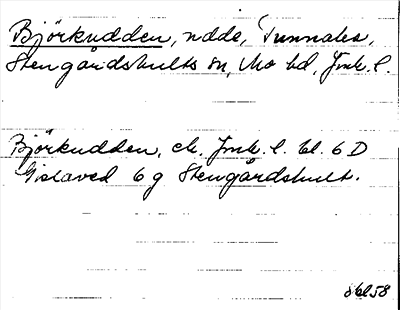 Björkudden, udde, Tunnales,
Stengårdshults sn, Mo hd, Jmk. l.
Björkudden, ek. Jmk. l. bl. 6 D
Gislaved 6 g Stengårdshult.